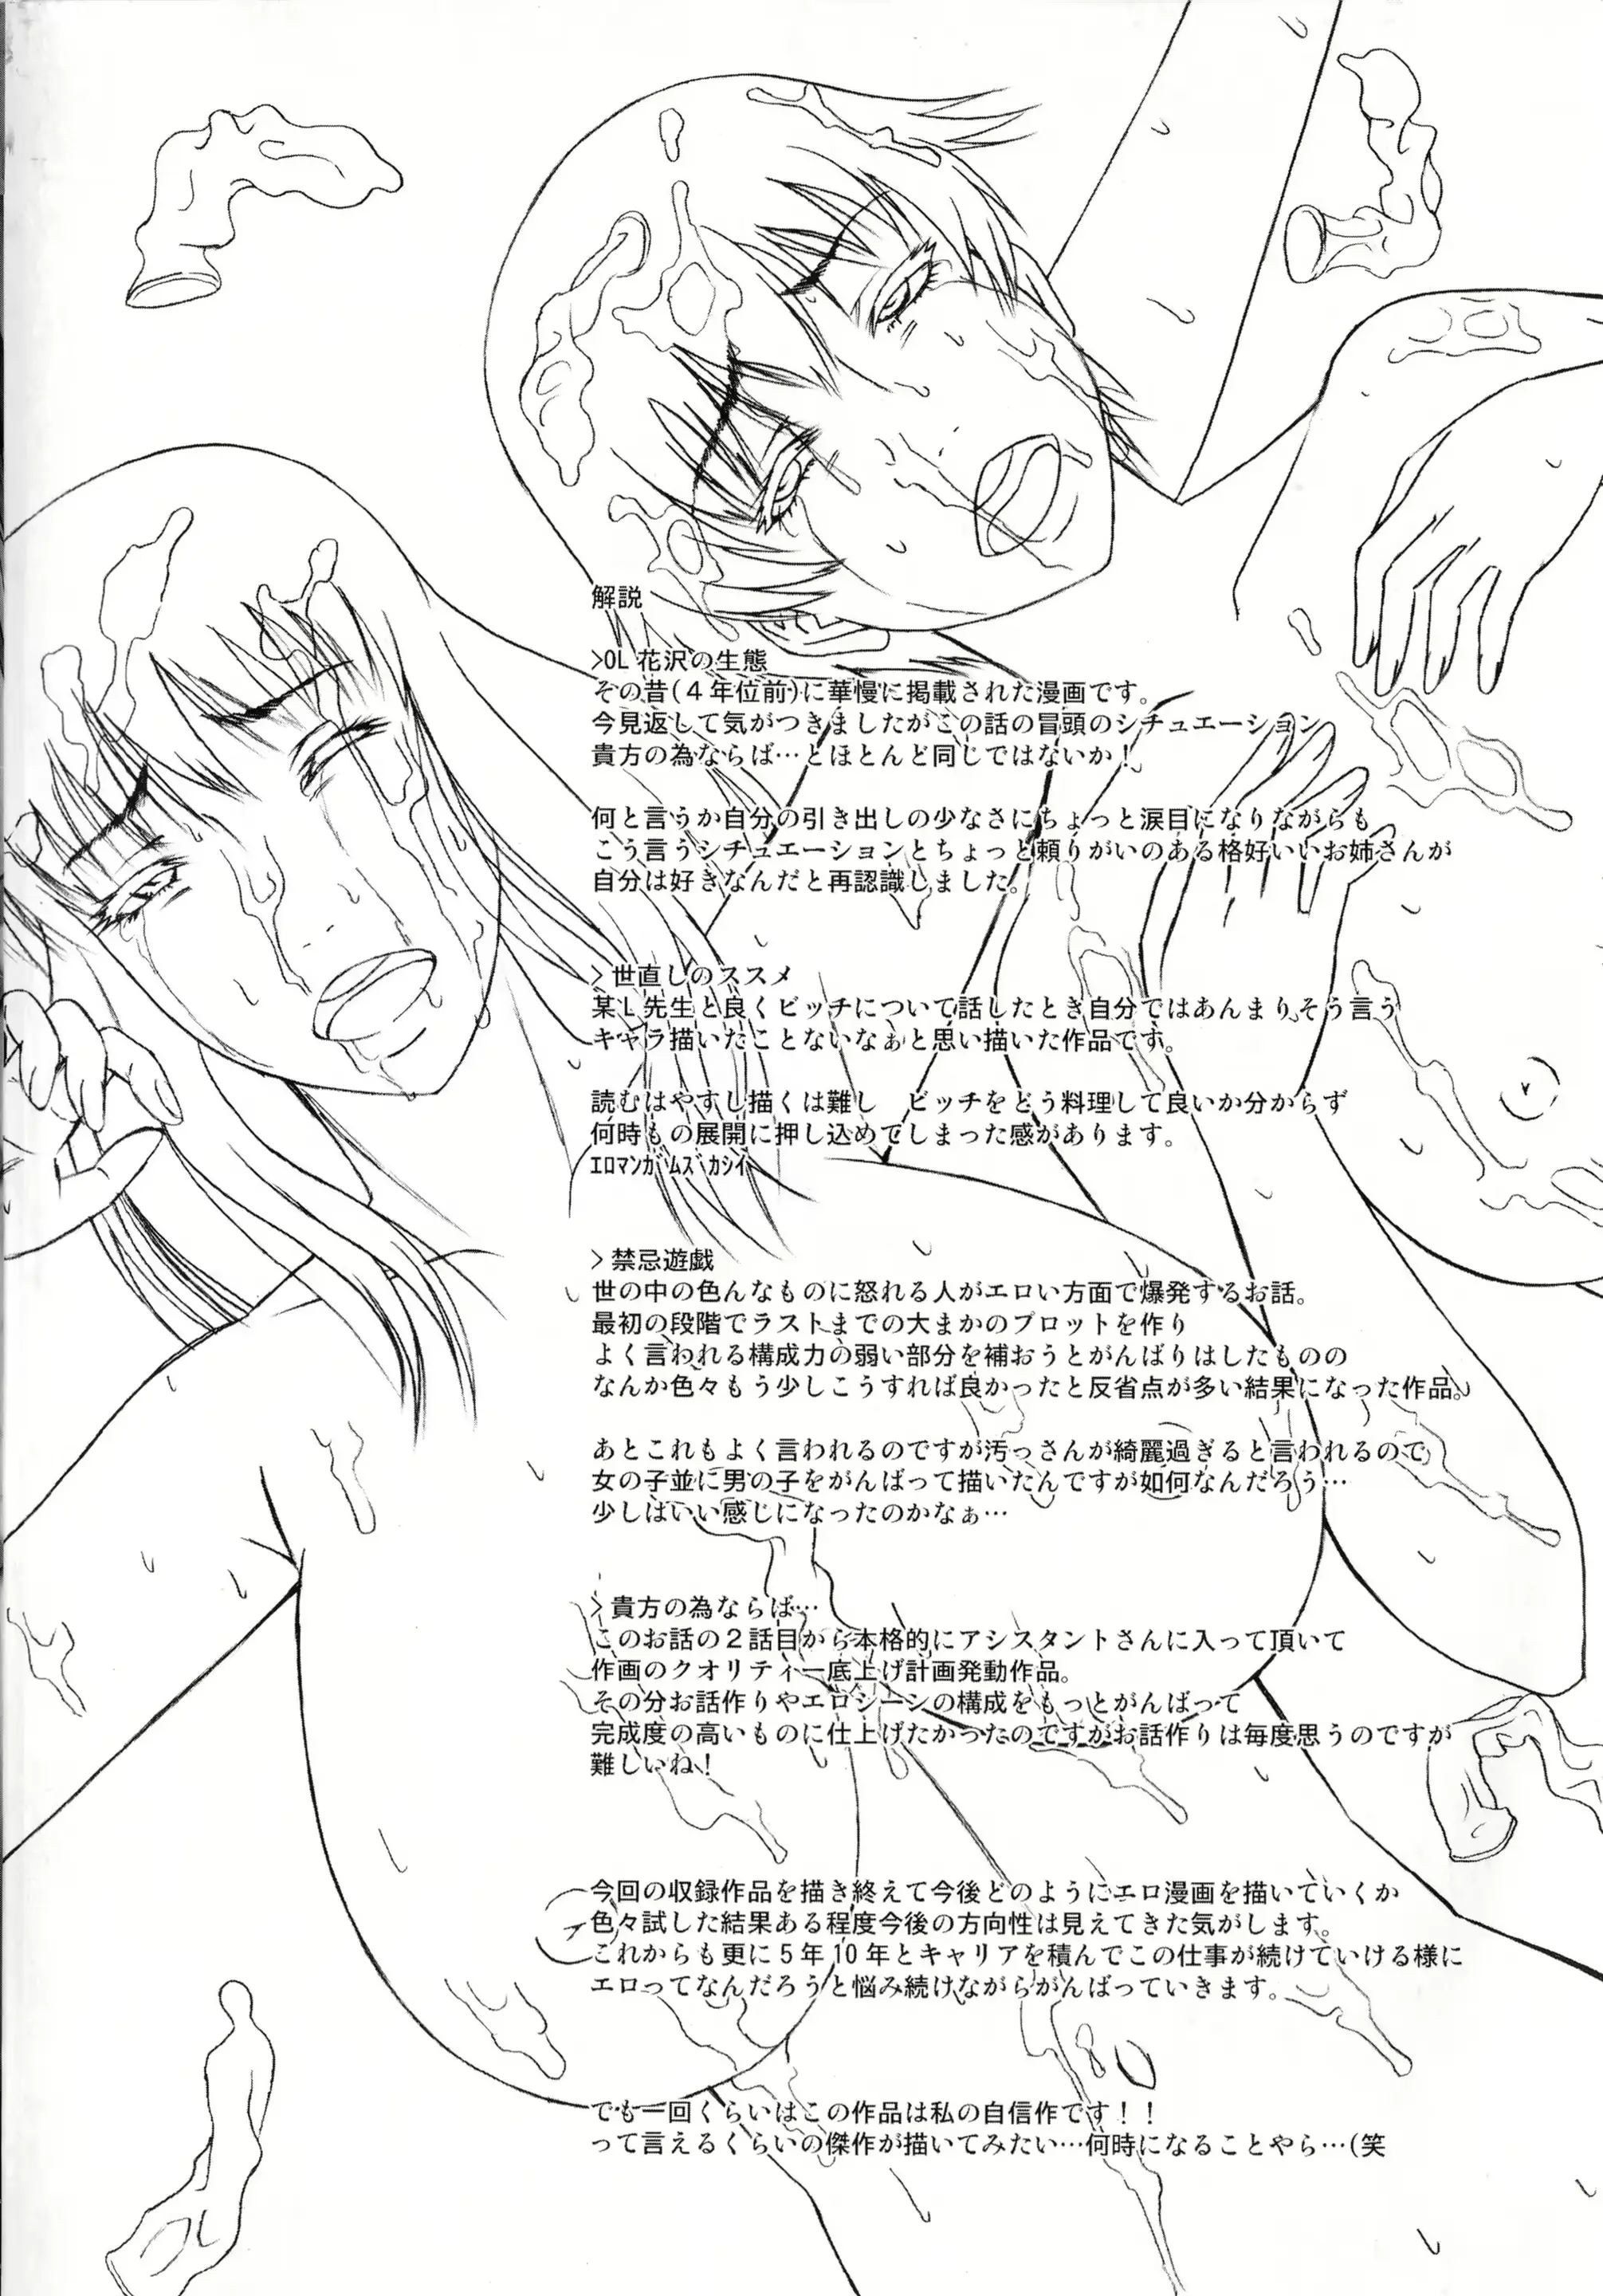 解説
>OL花沢の生態
その昔(４年位前)に華慢に掲載された漫画です。
今見返して気がつきましたがこの話の冒頭のシチュエーション
貴方の為ならば…とほとんど同じではないか！
何と言うか自分の引き出しの少なさにちょっと涙目になりながらも
こう言うシチュエーションとちょっと頼りがいのある格好いいお姉さんが
自分は好きなんだと再認識しました。
>世直しのススメ
某L先生と良くビッチについて話したとき自分ではあんまりそう言う
キャラ描いたことないなぁと思い描いた作品です。
読むはやすし描くは難し　ビッチをどう料理して良いか分からず
何時もの展開に押し込めてしまった感があります。
ｴﾛﾏﾝｶﾞﾑｽﾞｶｼｲ
>禁忌遊戯
世の中の色んなものに怒れる人がエロい方面で爆発するお話。
最初の段階でラストまでの大まかのプロットを作り
よく言われる構成力の弱い部分を補おうとがんばりはしたものの
なんか色々もう少しこうすれば良かったと反省点が多い結果になった作品。
あとこれもよく言われるのですが汚っさんが綺麗過ぎると言われるので
女の子並に男の子をがんばって描いたんですが如何なんだろう…
少しはいい感じになったのかなぁ…
>貴方の為ならば…
このお話の２話目から本格的にアシスタントさんに入って頂いて
作画のクオリティー底上げ計画発動作品。
その分お話作りやエロシーンの構成をもっとがんばって
完成度の高いものに仕上げたかったのですがお話作りは毎度思うのですが
難しいね！
今回の収録作品を描き終えて今後どのようにエロ漫画を描いていくか
色々試した結果ある程度今後の方向性は見えてきた気がします。
これからも更に５年10年とキャリアを積んでこの仕事が続けていける様に
エロってなんだろうと悩み続けながらがんばっていきます。
でも一回くらいはこの作品は私の自信作です！！
って言えるくらいの傑作が描いてみたい…何時になることやら…(笑